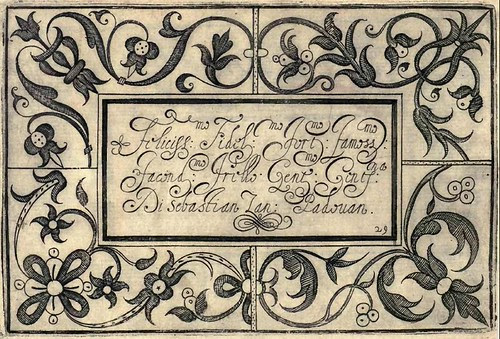 & Feliciss:mo Fidel:mo Fort:mo Famoss:mo
Facond:mo Fr:llo Gent:mo Gint:
Di Sebastian Zan: Padouan.
29